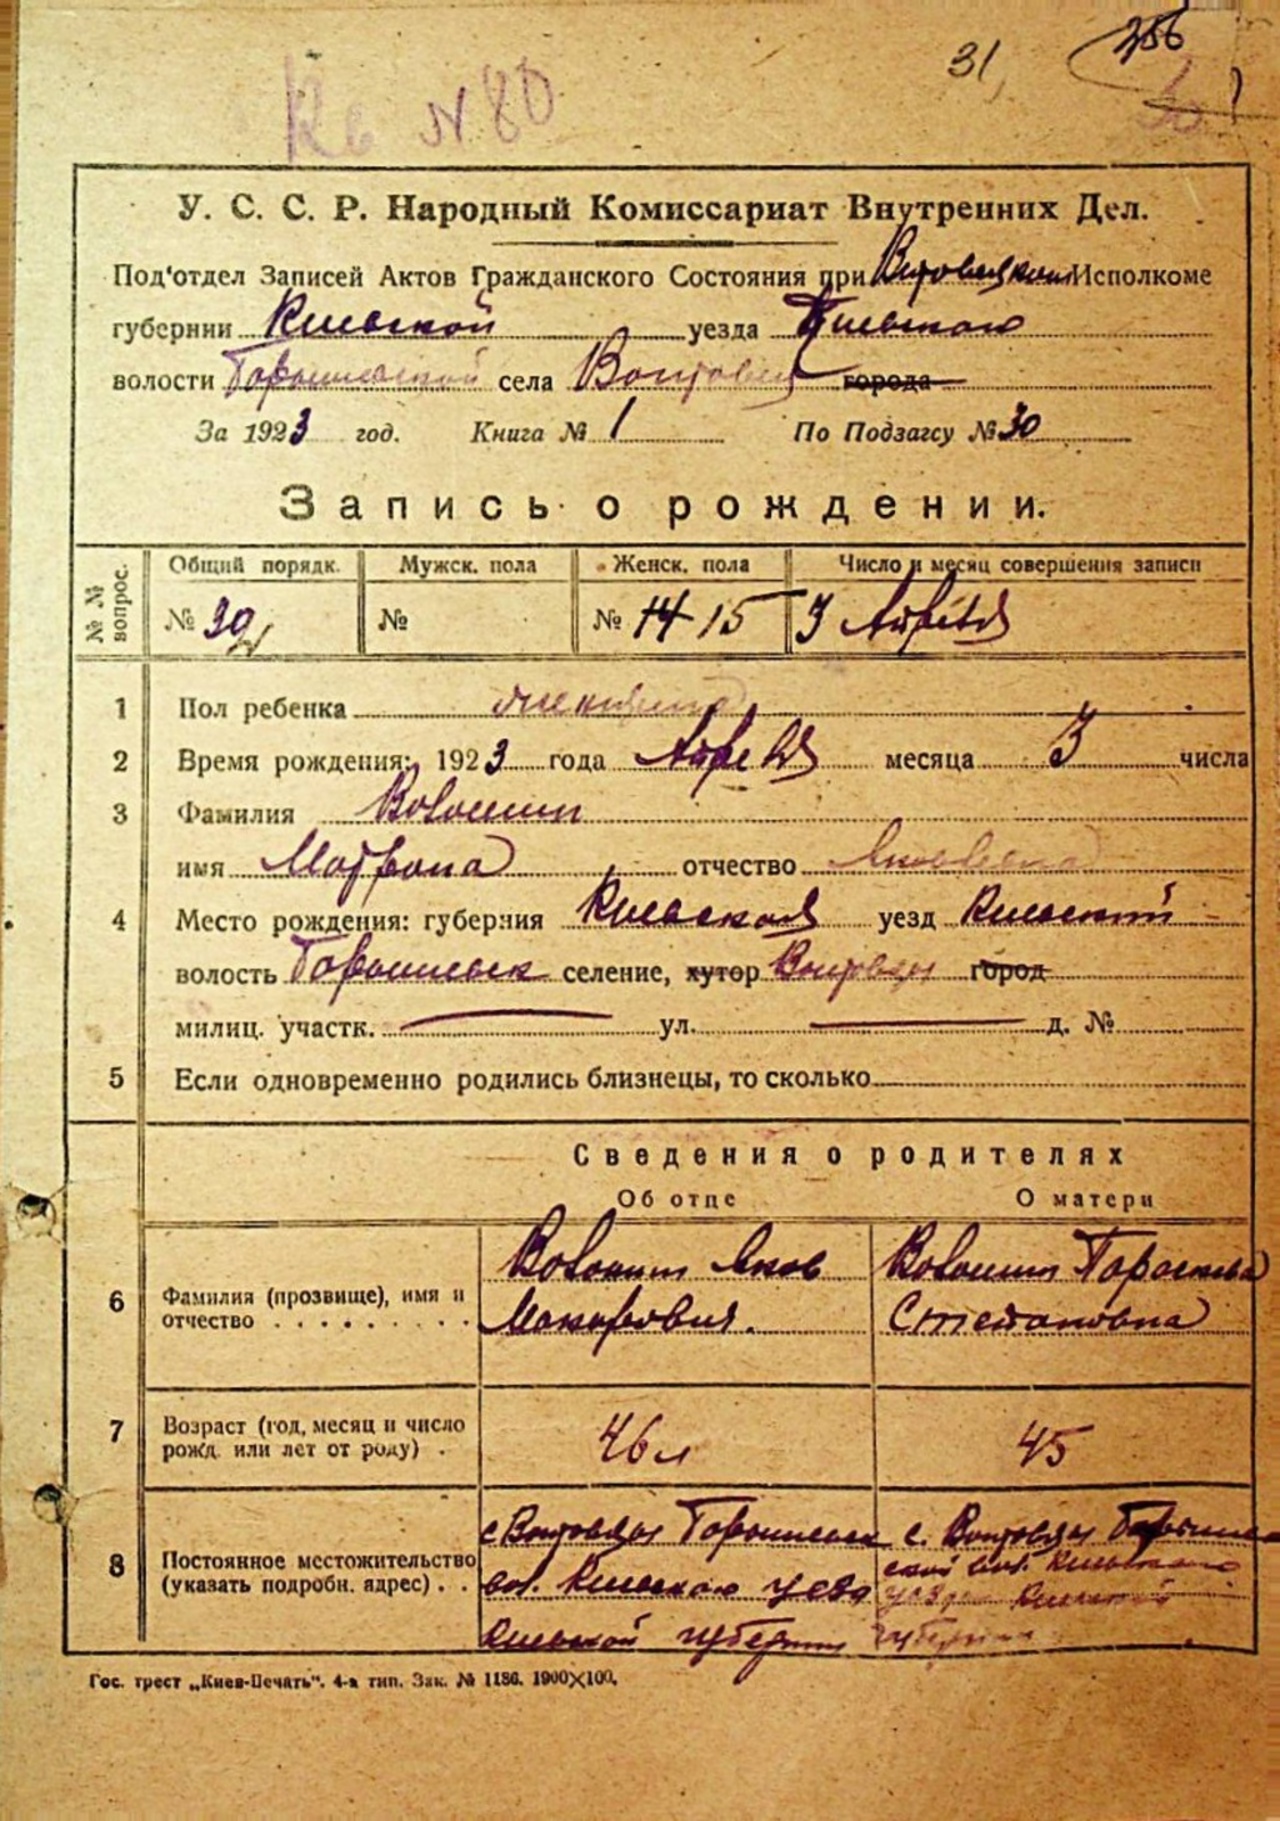 31
256
Кв N 80
У. С. С. Р. Народный Комиссариат Внутренних Дел.
Под'отдел Записей Актов Гражданского Состояния при Исполкоме
губернии Киевской уезда Киевского
волости села города
За 1923 год. Книга № 1 По Подзагсу № 30
Запись о рождении.
№ № вопрос. Общий порядк. Мужск. пола Женск. пола Число и месяц совершения записи
№ 30 № № 14 15 3 Апреля
1 Пол ребенка женщина
2 Время рождения: 1923 года Апреля месяца 3 числа
3 Фамилия Волошин
имя Мотрона отчество Яковлена
4 Место рождения: губерния Киевская уезд Киевский
волость селение, хутор город
милиц. участк. ул. д. №
5 Если одновременно родились близнецы, то сколько
Сведения о родителях
Об отце О матери
6 Фамилия (прозвище), имя и отчество . . . . . . . . . Волошин Яков Макарович. Волошин Параскева Степановна
7 Возраст (год, месяц и число рожд. или лет от роду) . 46 л 45
8 Постоянное местожительство (указать подробн. адрес) . . с вол. Киевского уезда Киевской губернии с. вол. Киевского уезда Киевской губернии
Гос. трест „Киев-Печать“. 4-я тип. Зак. № 1186. 1900×100.